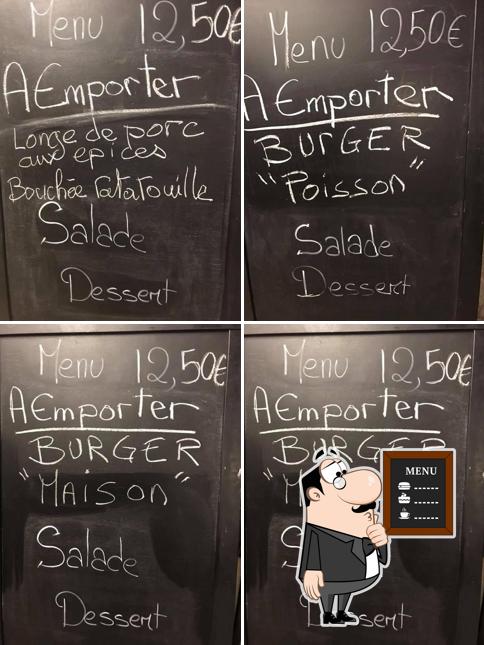 Menu 12,50€
A Emporter
Longe de porc
aux épices
Bouchée Ratatouille
Salade
Dessert
Menu 12,50€
A Emporter
BURGER
"Poisson"
Salade
Dessert
Menu 12,50€
A Emporter
BURGER
"MAISON"
Salade
Dessert
Menu 12,50€
A Emporter
BURGER
MENU